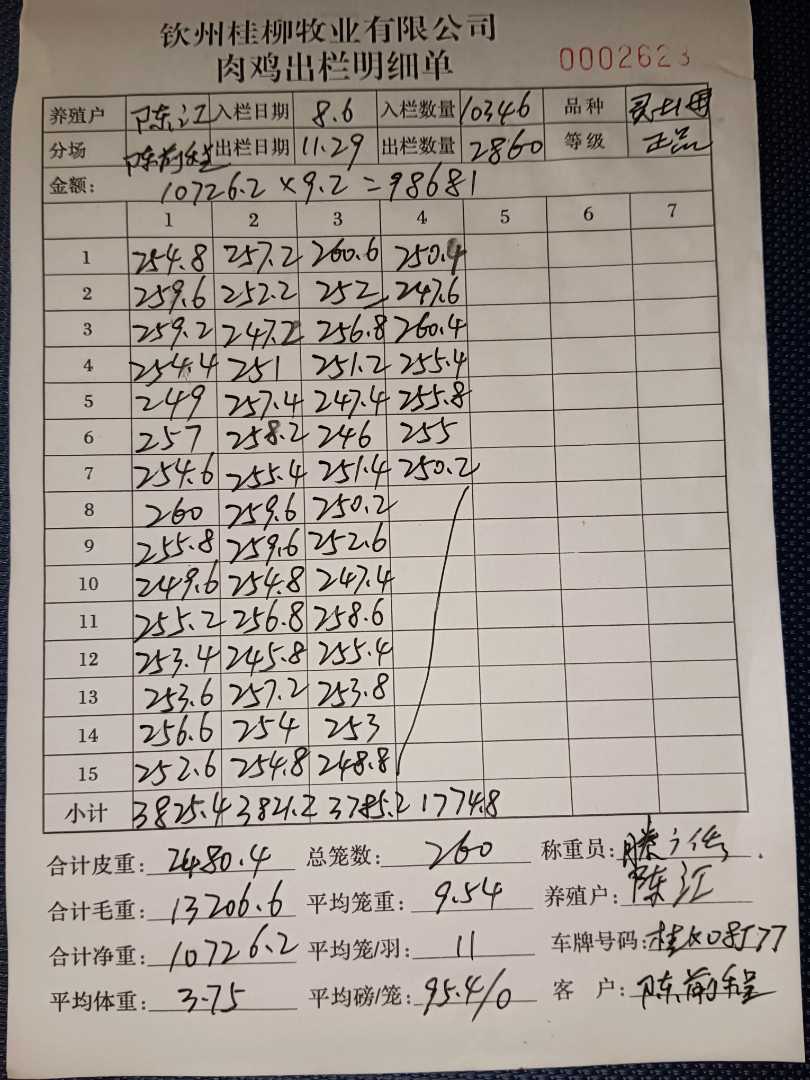 钦州桂柳牧业有限公司
肉鸡出栏明细单 0002623
养殖户 陈江 入栏日期 8.6 入栏数量 10346 品种
分场 陈前程 出栏日期 11.29 出栏数量 2860 等级 正品
金额: 10726.2×9.2=98681
1 2 3 4 5 6 7
1 254.8 257.2 260.6 250.4
2 259.6 252.2 252 247.6
3 259.2 247.2 256.8 260.4
4 254.4 251 251.2 255.4
5 249 257.4 247.4 255.8
6 257 258.2 246 255
7 254.6 255.4 251.4 250.2
8 260 259.6 250.2
9 255.8 259.6 252.6
10 249.6 254.8 247.4
11 255.2 256.8 258.6
12 253.4 245.8 255.4
13 253.6 257.2 253.8
14 256.6 254 253
15 252.6 254.8 248.8
小计 3825.4 3821.2 3785.2 1774.8
合计皮重: 2480.4 总笼数: 260 称重员:
合计毛重: 13206.6 平均笼重: 9.54 养殖户: 陈江
合计净重: 10726.2 平均笼/羽: 11 车牌号码:
平均体重: 3.75 平均磅/笼: 95.4/0 客 户: 陈前程